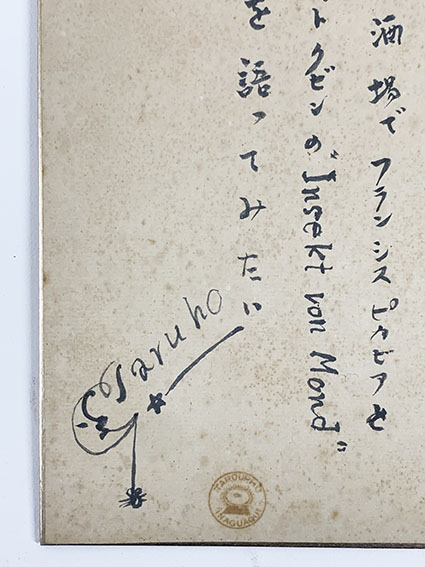 酒場で フランシス ピカビア
ト クビン の "Insekt von Mond"
を 語ってみたい
Taruho
TAROUPHO
INAGUAQUI